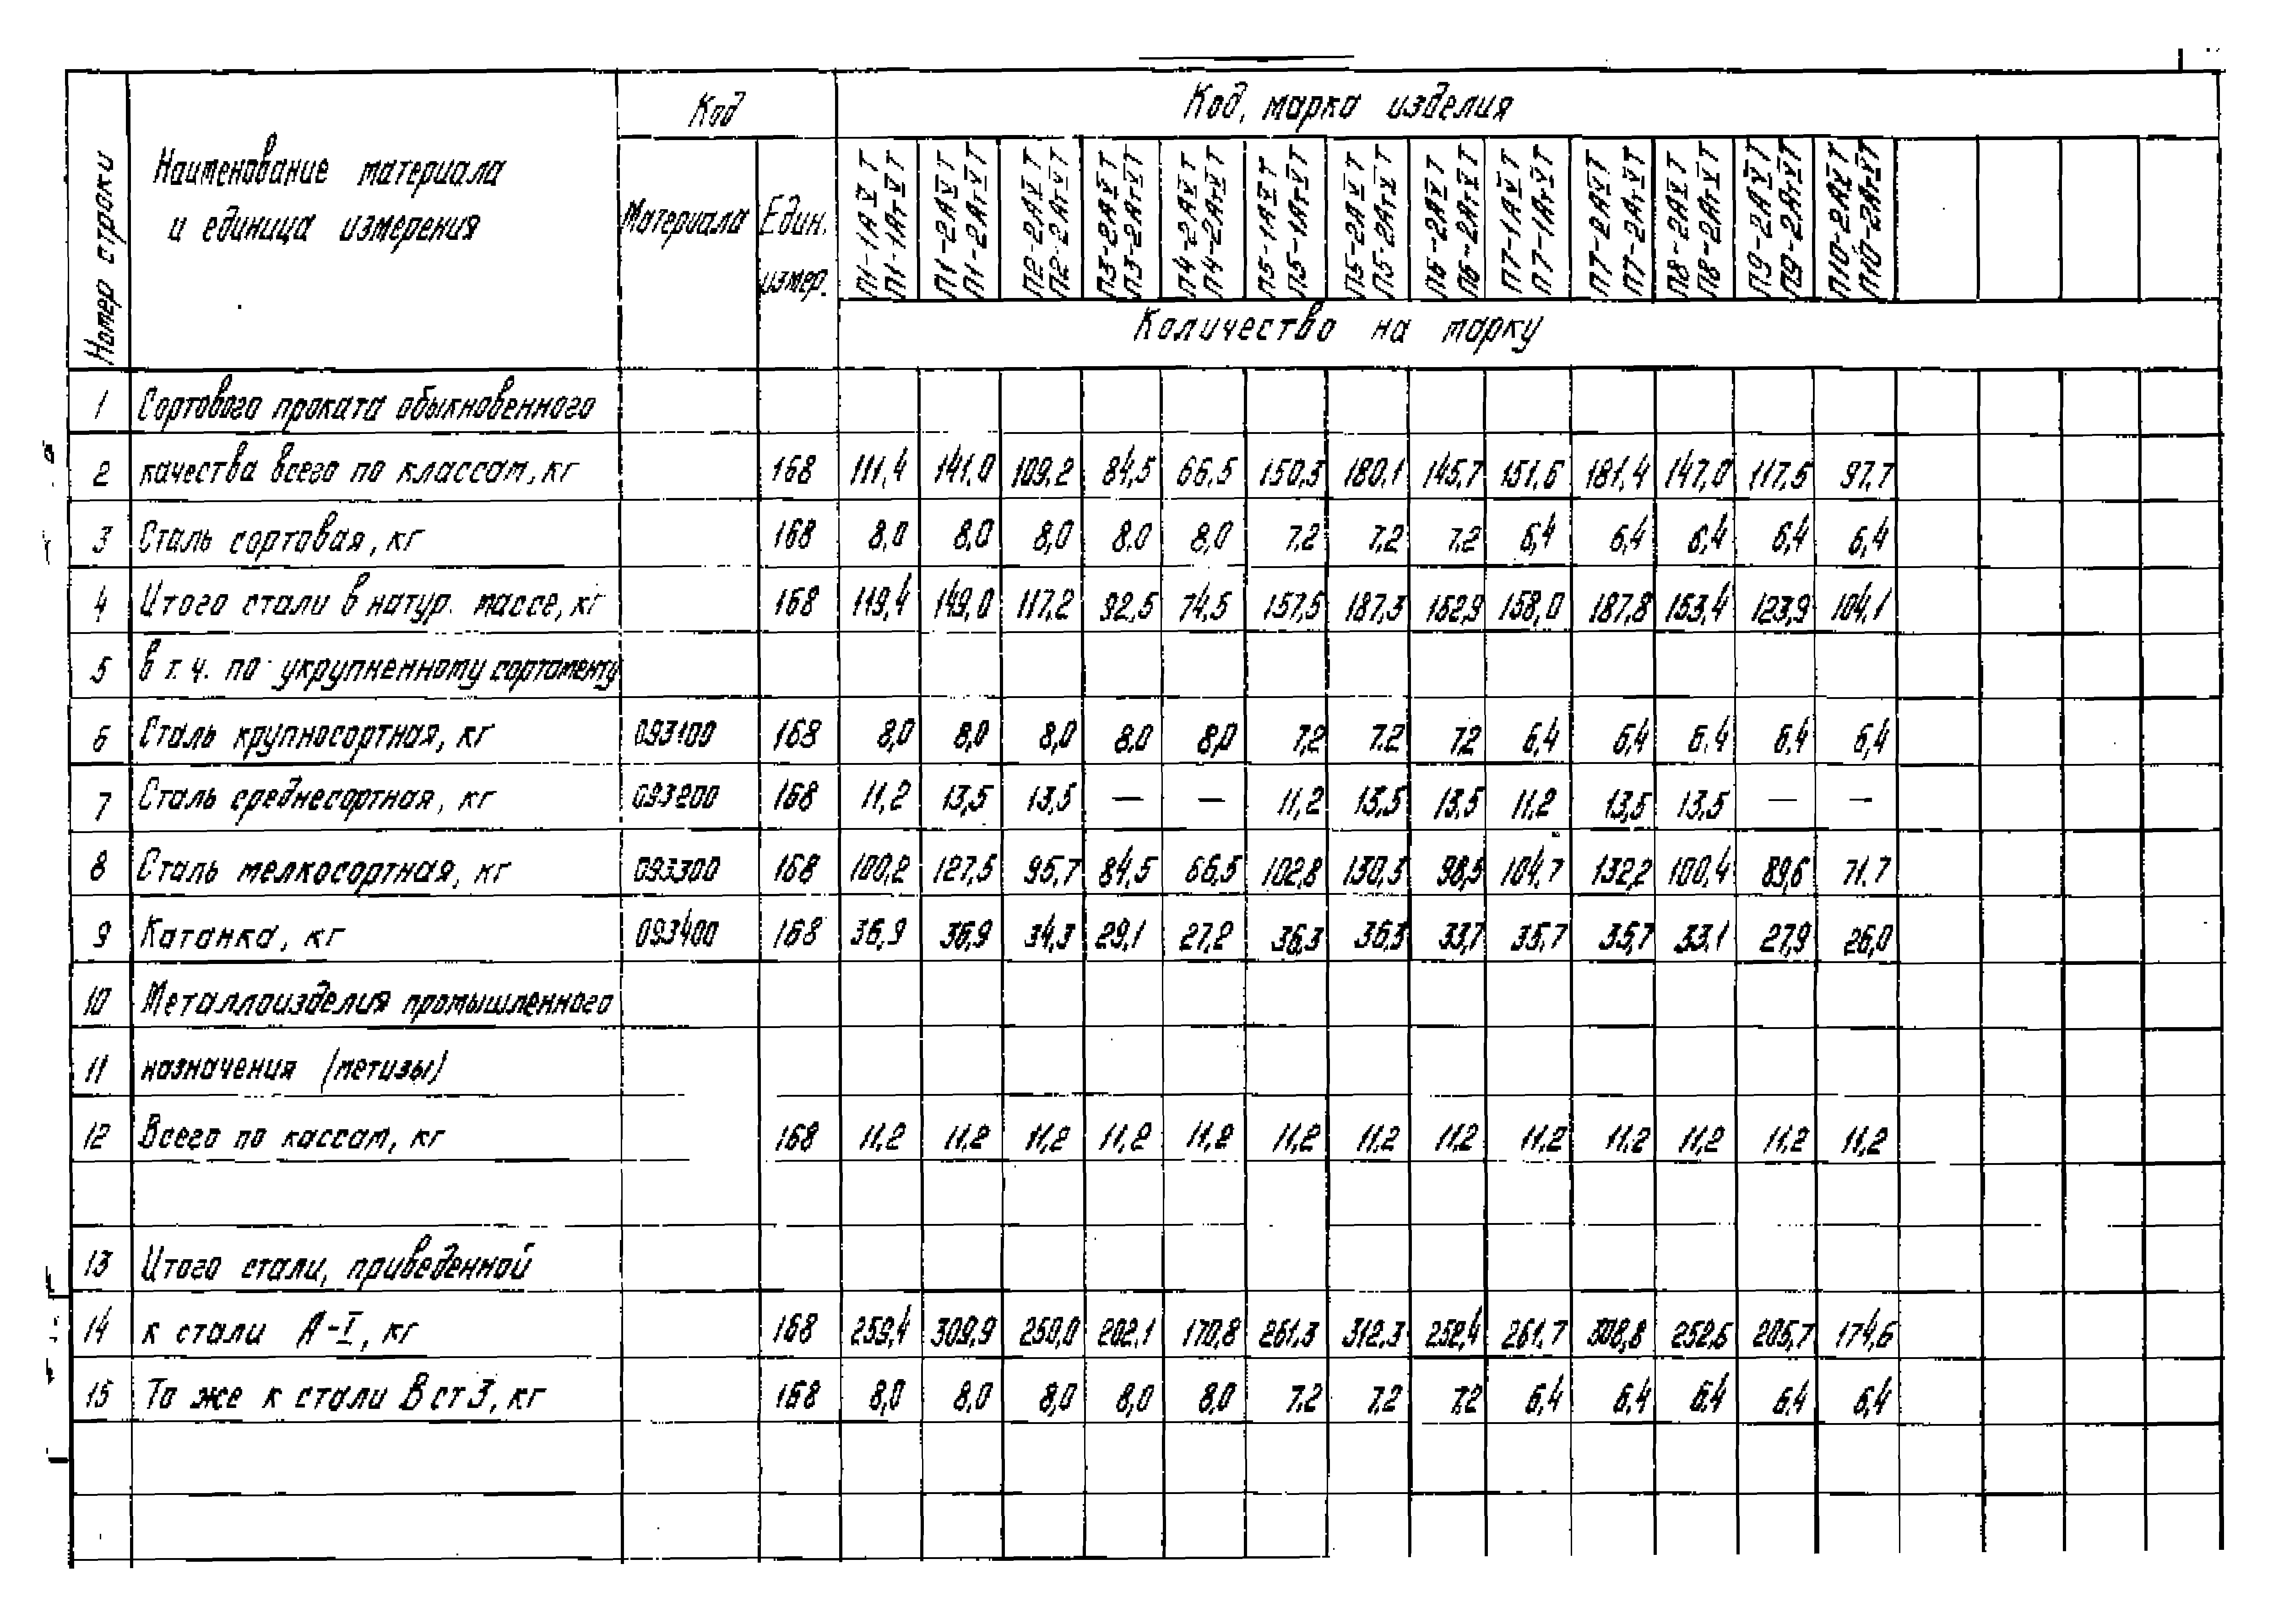 Код
Код, марка изделия
Номер строки
Наименование материала
и единица измерения
Материала
Един.
измер.
П1-1АV Т
П1-1Ат-VТ
П1-2АVТ
П1-2Ат-VТ
П2-2АVТ
П2-2Ат-VТ
П3-2АVТ
П3-2Ат-VТ
П4-2АVТ
П4-2Ат-VТ
П5-1АVТ
П5-1Ат-VТ
П5-2АVТ
П5-2Ат-VТ
П6-2АVТ
П6-2Ат-VТ
П7-1АVТ
П7-1Ат-VТ
П7-2АVТ
П7-2Ат-VТ
П8-2АVТ
П8-2Ат-VТ
П9-2АVТ
П9-2Ат-VТ
П10-2АVТ
П10-2Ат-VТ
Количество на марку
1 Сортового проката обыкновенного
2 качества всего по классам, кг 168 111,4 141,0 109,2 84,5 66,5 150,3 180,1 145,7 151,6 181,4 147,0 117,5 97,7
3 Сталь сортовая, кг 168 8,0 8,0 8,0 8,0 8,0 7,2 7,2 7,2 6,4 6,4 6,4 6,4 6,4
4 Итого стали в натур. массе, кг 168 119,4 149,0 117,2 92,5 74,5 157,5 187,3 152,9 158,0 187,8 153,4 123,9 104,1
5 в т. ч. по укрупненному сортаменту
6 Сталь крупносортная, кг 093100 168 8,0 8,0 8,0 8,0 8,0 7,2 7,2 7,2 6,4 6,4 6,4 6,4 6,4
7 Сталь среднесортная, кг 093200 168 11,2 13,5 13,5 — — 11,2 13,5 13,5 11,2 13,5 13,5 — —
8 Сталь мелкосортная, кг 093300 168 100,2 127,5 95,7 84,5 66,5 102,8 130,3 98,5 104,7 132,2 100,4 89,6 71,7
9 Катанка, кг 093400 168 36,9 36,9 34,3 29,1 27,2 36,3 36,3 33,7 35,7 35,7 33,1 27,9 26,0
10 Металлоизделия промышленного
11 назначения (метизы)
12 Всего по кассам, кг 168 11,2 11,2 11,2 11,2 11,2 11,2 11,2 11,2 11,2 11,2 11,2 11,2 11,2
13 Итого стали, приведенной
14 к стали А-I, кг 168 259,4 309,9 250,0 202,1 170,8 261,3 312,3 252,4 261,7 308,8 252,6 205,7 174,6
15 То же к стали В ст 3, кг 168 8,0 8,0 8,0 8,0 8,0 7,2 7,2 7,2 6,4 6,4 6,4 6,4 6,4